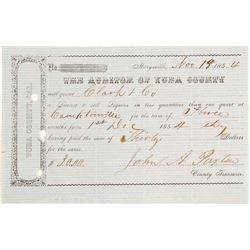 No.
Marysville, Nov 19 1854
THE AUDITOR OF YUBA COUNTY
will grant Clark & Co
a License to sell Liquors in less quantities than one quart at
Camptonville for the term of Three
months from 1st Dec 1854 they
having paid the sum of Thirty Dollars
for the same.
$ 30.00 John A. Paxton
County Treasurer.